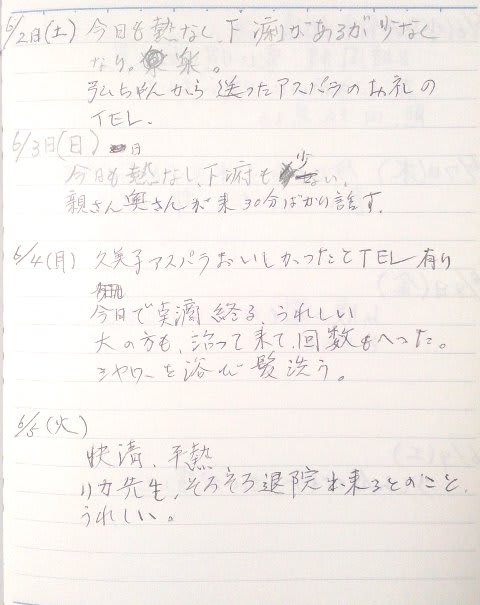 6/2日(土) 今日も熱なく、下痢があるが少なく
なり。楽。
弘ちゃんから送ったアスパラのお礼の
TEL.
6/3日(日)
今日も熱なし、下痢も少ない、
親さん奥さんが来30分ばかり話す。
6/4(月) 久美子アスパラおいしかったとTEL有り
今日で点滴終る、うれしい
大の方も、治って来て、回数もへった。
シャワーを浴び髪洗う。
6/5(火)
快清、平熱
リカ先生、そろそろ退院出来るとのこと、
うれしい。